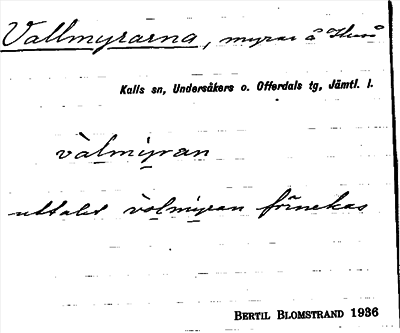 Vallmyrarna, myrar å
Kalls sn, Undersåkers o. Offerdals tg, Jämtl. l.
vàlmyran
uttalet vòlmyran förnekas
BERTIL BLOMSTRAND 1936